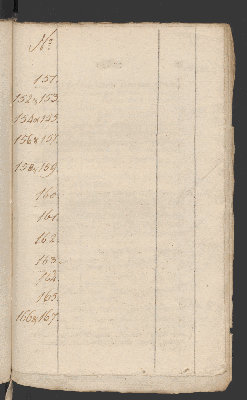 N.º
151.
152 x 153.
154 x 155.
156 x 157.
158 x 159.
160.
161.
162.
163.
164.
165.
166 x 167.